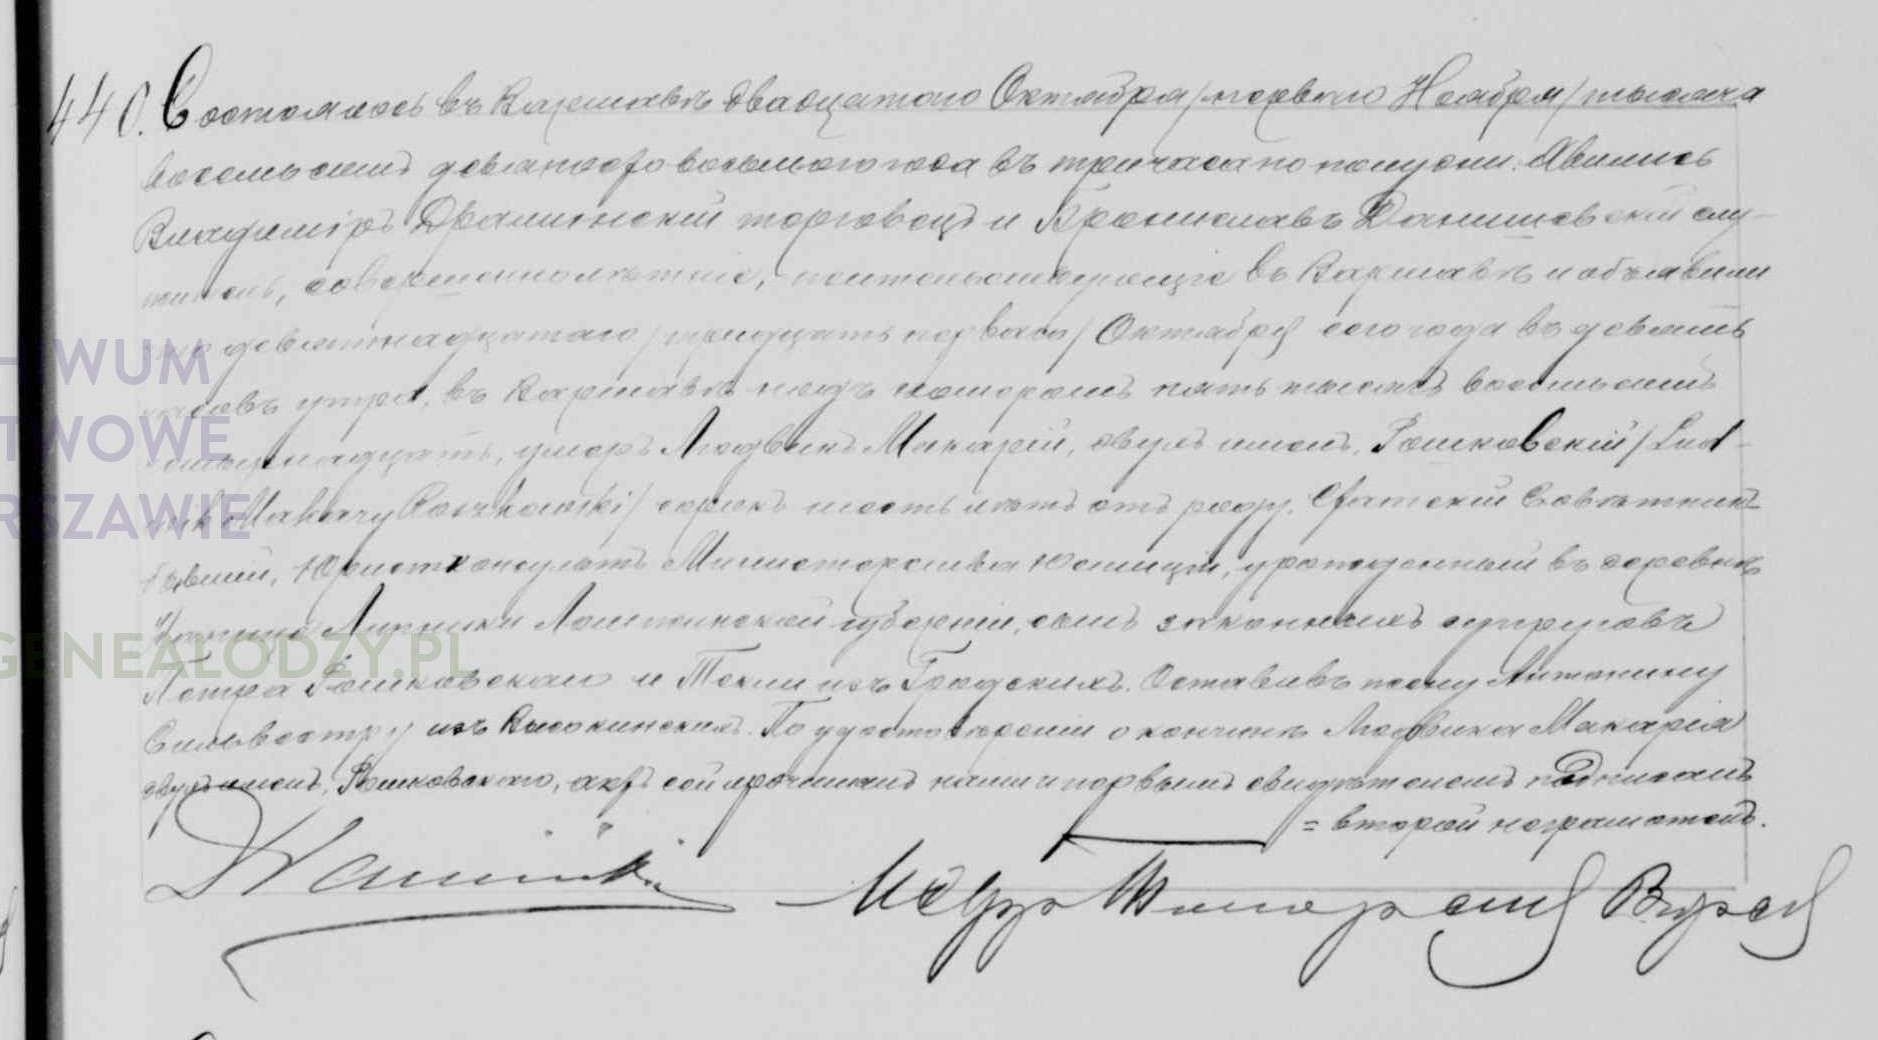 440. Состоялось въ Варшавѣ двадцатаго Октября /перваго Ноября/ тысяча
восемьсотъ девяносто восьмого года въ три часа по полудни. Явились
Владиміръ Драминскій торговецъ и Брониславъ Данишевскій слу-
житель, совершеннолѣтніе, жительствующіе въ Варшавѣ и объявили
что девятнадцатаго /тридцать перваго/ Октября сего года въ девять
часовъ утра, въ Варшавѣ подъ номеромъ пять тысячъ восемьсотъ
умеръ Людвикъ Макарій, двухъ именъ, Рошковскій /Lud-
wik Makary Roszkowski/ сорокъ шесть лѣтъ отъ роду, Статскій Совѣтникъ
бывшій, Юрисконсультъ Министерства Юстиціи, урожденный въ деревнѣ
Липники Ломжинской губерніи, сынъ законныхъ супруговъ
Петра Рошковскаго и Текли изъ Градскихъ. Оставивъ жену Антонину
Сильвестру изъ Высокинскихъ. По удостовѣреніи о кончинѣ Людвика Макарія
двухъ именъ, Рошковскаго, актъ сей прочитанъ нами и первымъ свидѣтелемъ подписанъ
= второй неграмотенъ.
ARCHIWUM
PAŃSTWOWE
W WARSZAWIE
GENEALODZY.PL